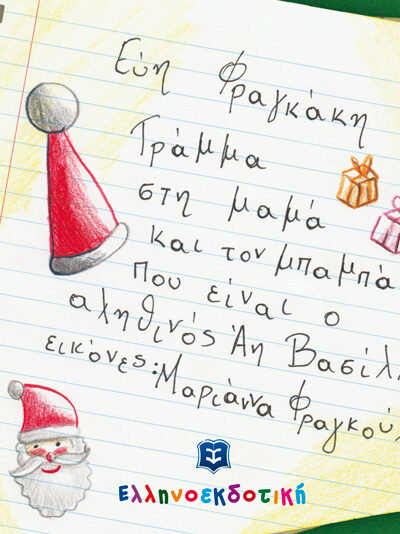 Εύη Φραγκάκη
Γράμμα
στη μαμά
και τον μπαμπά
που είναι ο
αληθινός Άη Βασίλ
εικόνες: Μαριάννα Φραγκού
Ελληνοεκδοτική